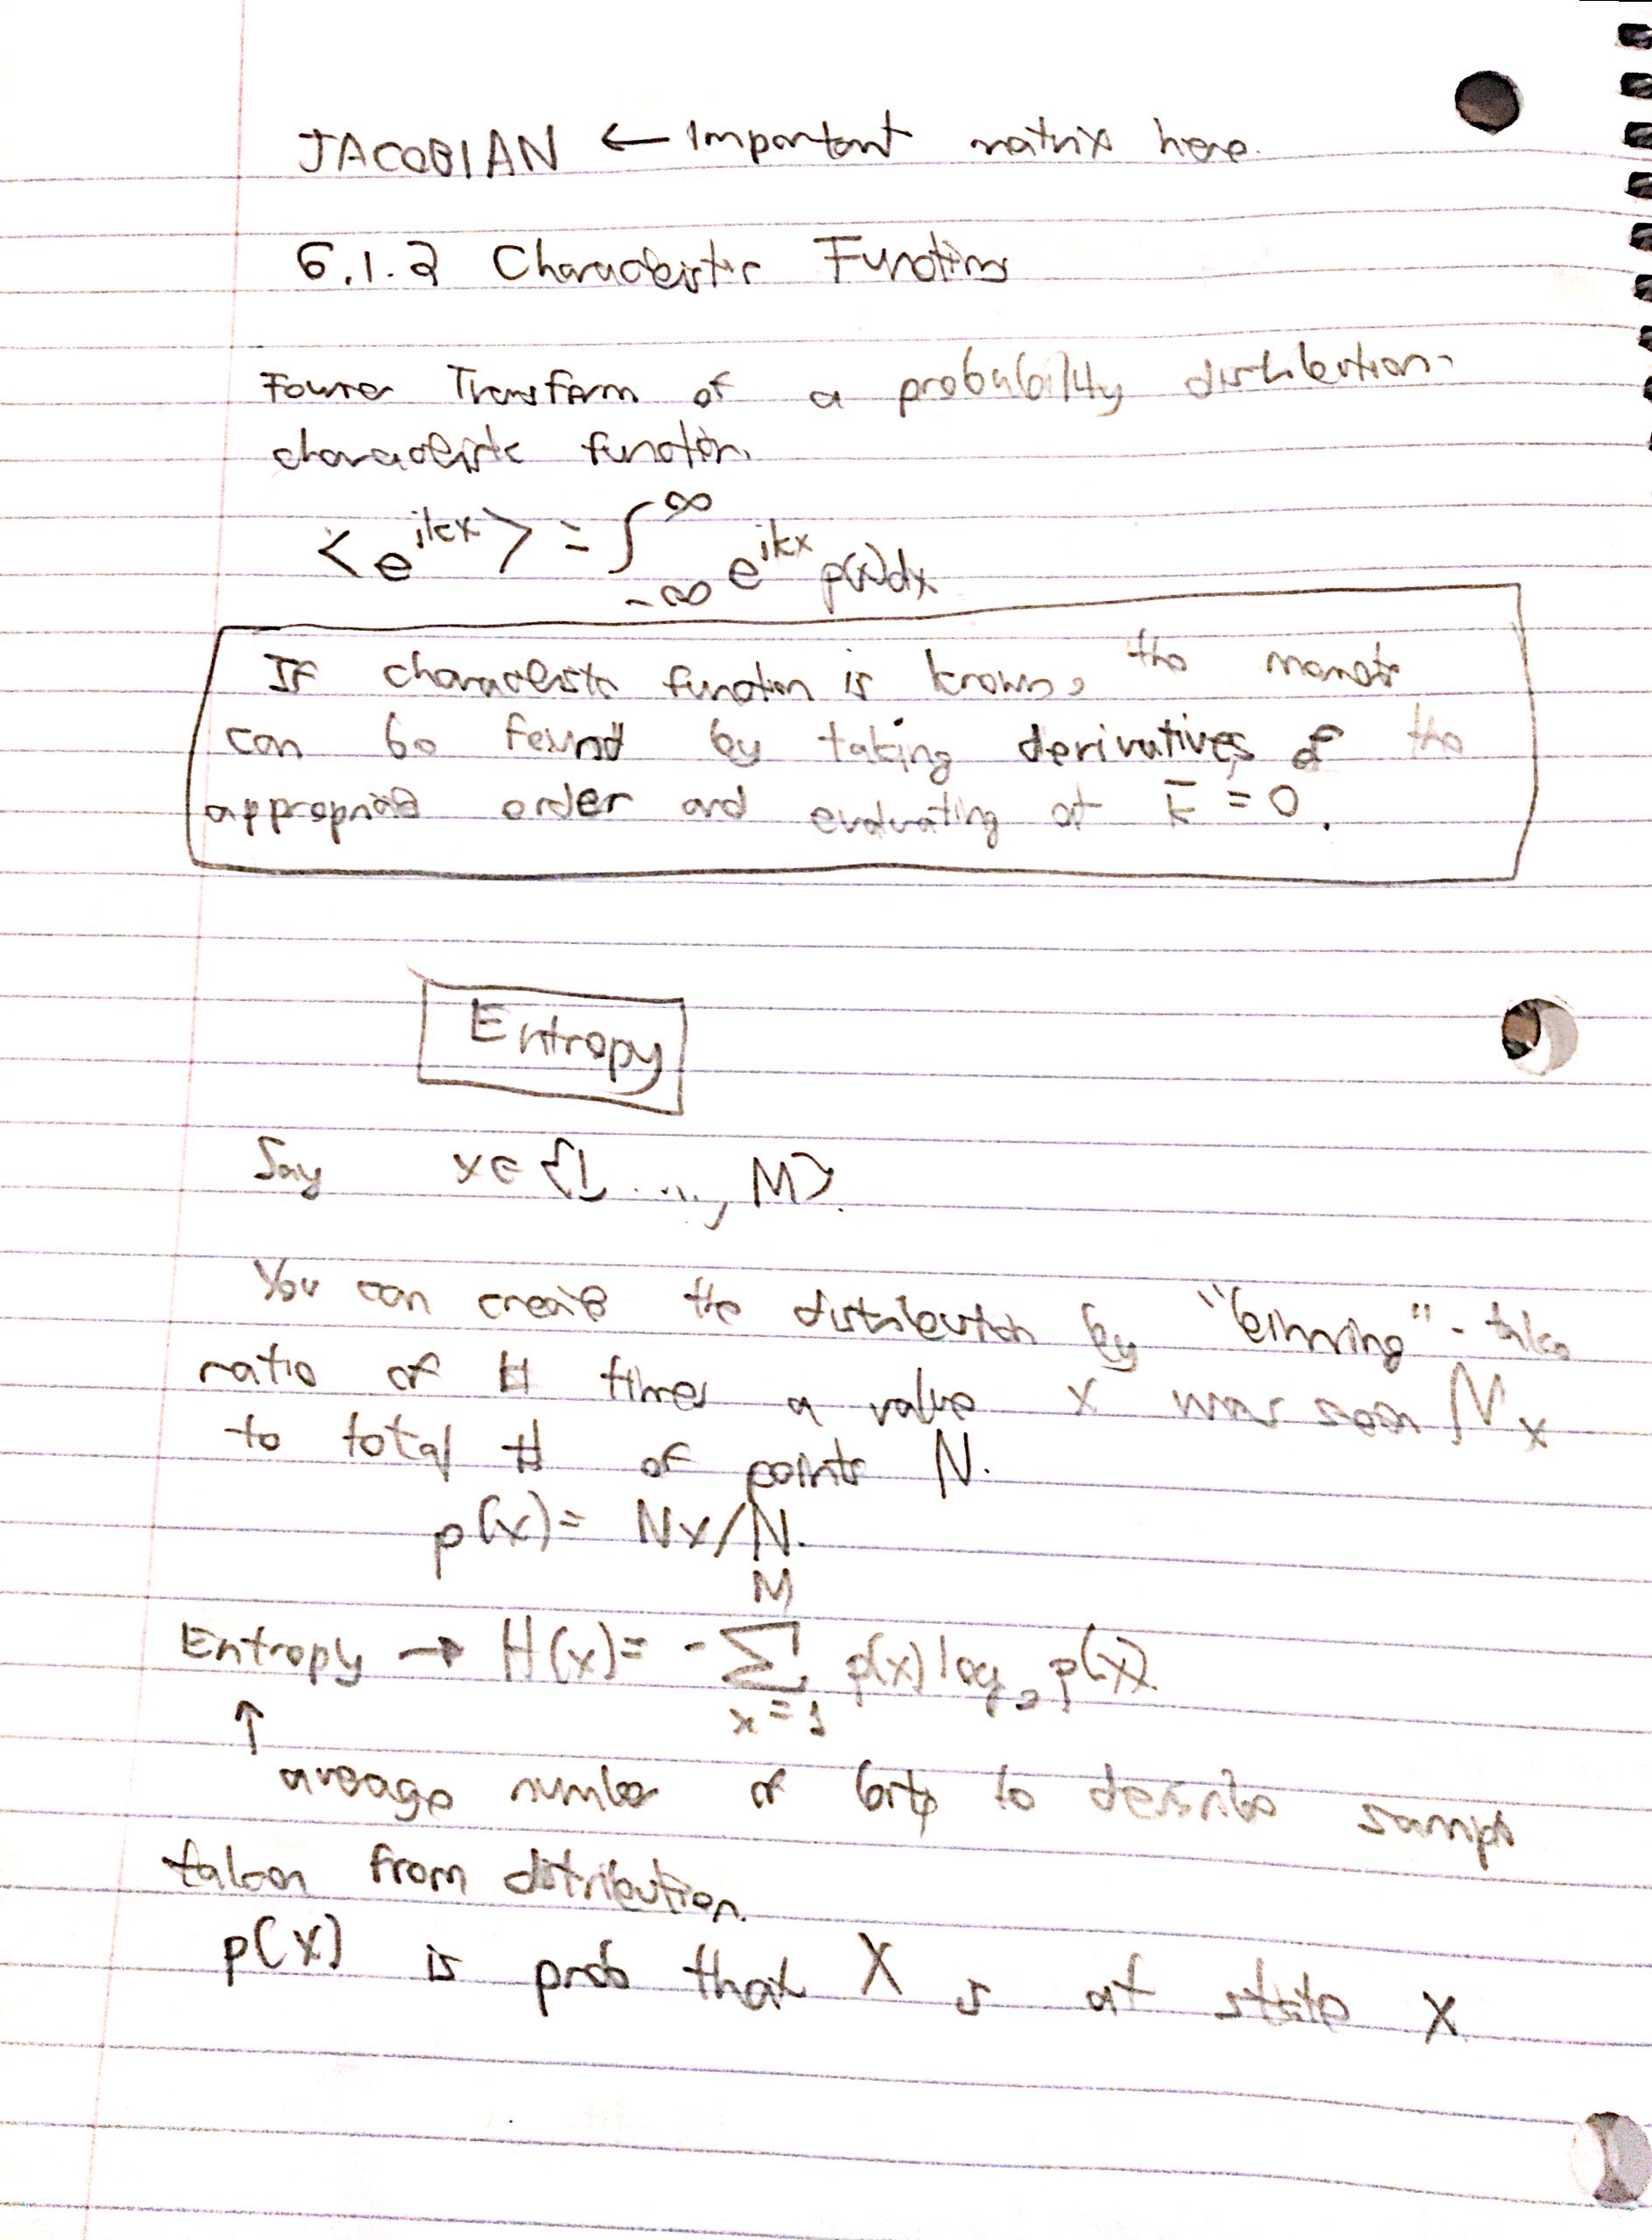 JACOBIAN ← Important matrix here.
6.1.3 Characteristic Functions
Fourier Transform of a probability distribution -
characteristic function.
<e^{ikx}> = ∫_{-∞}^{∞} e^{ikx} p(x)dx
If characteristic function is known, the moments
can be found by taking derivatives of the
appropriate order and evaluating at k̄ = 0.
Entropy
Say x ∈ {1, ..., M}.
You can create the distribution by "binning" - take
ratio of # times a value x was seen N_x
to total # of points N.
p(x) = Nx/N.
Entropy → H(x) = -∑_{x=1}^{M} p(x) log_2 p(x).
↑
average number of bits to describe sample
taken from distribution.
p(x) is prob that X is at state x